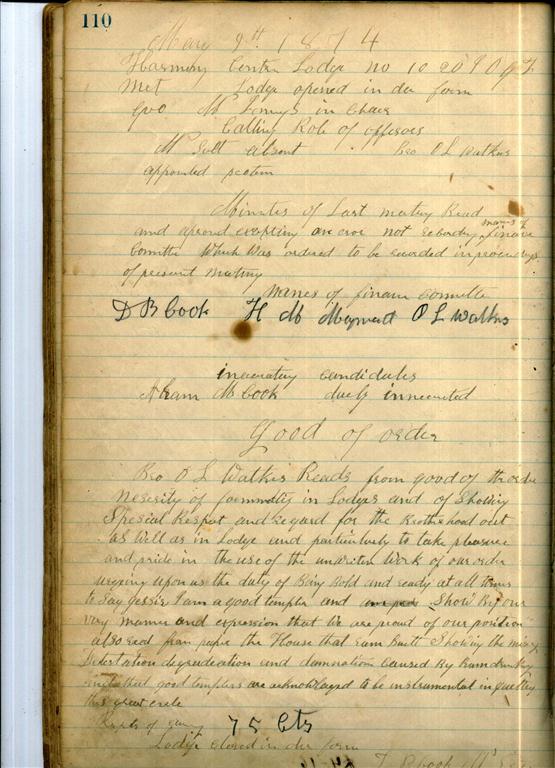 110
May 9th 1874
Harmony Centre Lodge no 10 20 I O G T
Met Lodge opened in due form
in Chair
Calling Role of officers
absent Bro O L Watkis
appointed protem
Minutes of Last meeting Read
names of
and aproved excepting an eror not recording finance
Comitte Which Was ordered to be recorded in proceedings
of present meeting
Names of finance Committe
D B Cook H M O L Watkis
candidates
M Cook duely
Good of order
Bro O L Watkis Reads from good of the order
Necesity of in Lodges and of Showing
Special Respect and regard for the Brotherhood out
as well as in Lodge and particularly to take pleasure
and pride in the use of the unwriten Work of our order
urgeing upon us the duty of Being Bold and ready at all times
to Say yessir I am a good templar and Show By our
very manner and expression that We are proud of our position
also read from paper the House that Rum Built Showing the misery
degradation and damnation caused By
that good templers are acknowlaged to be instrumental in
this great
75 Cts
Lodge closed in due form